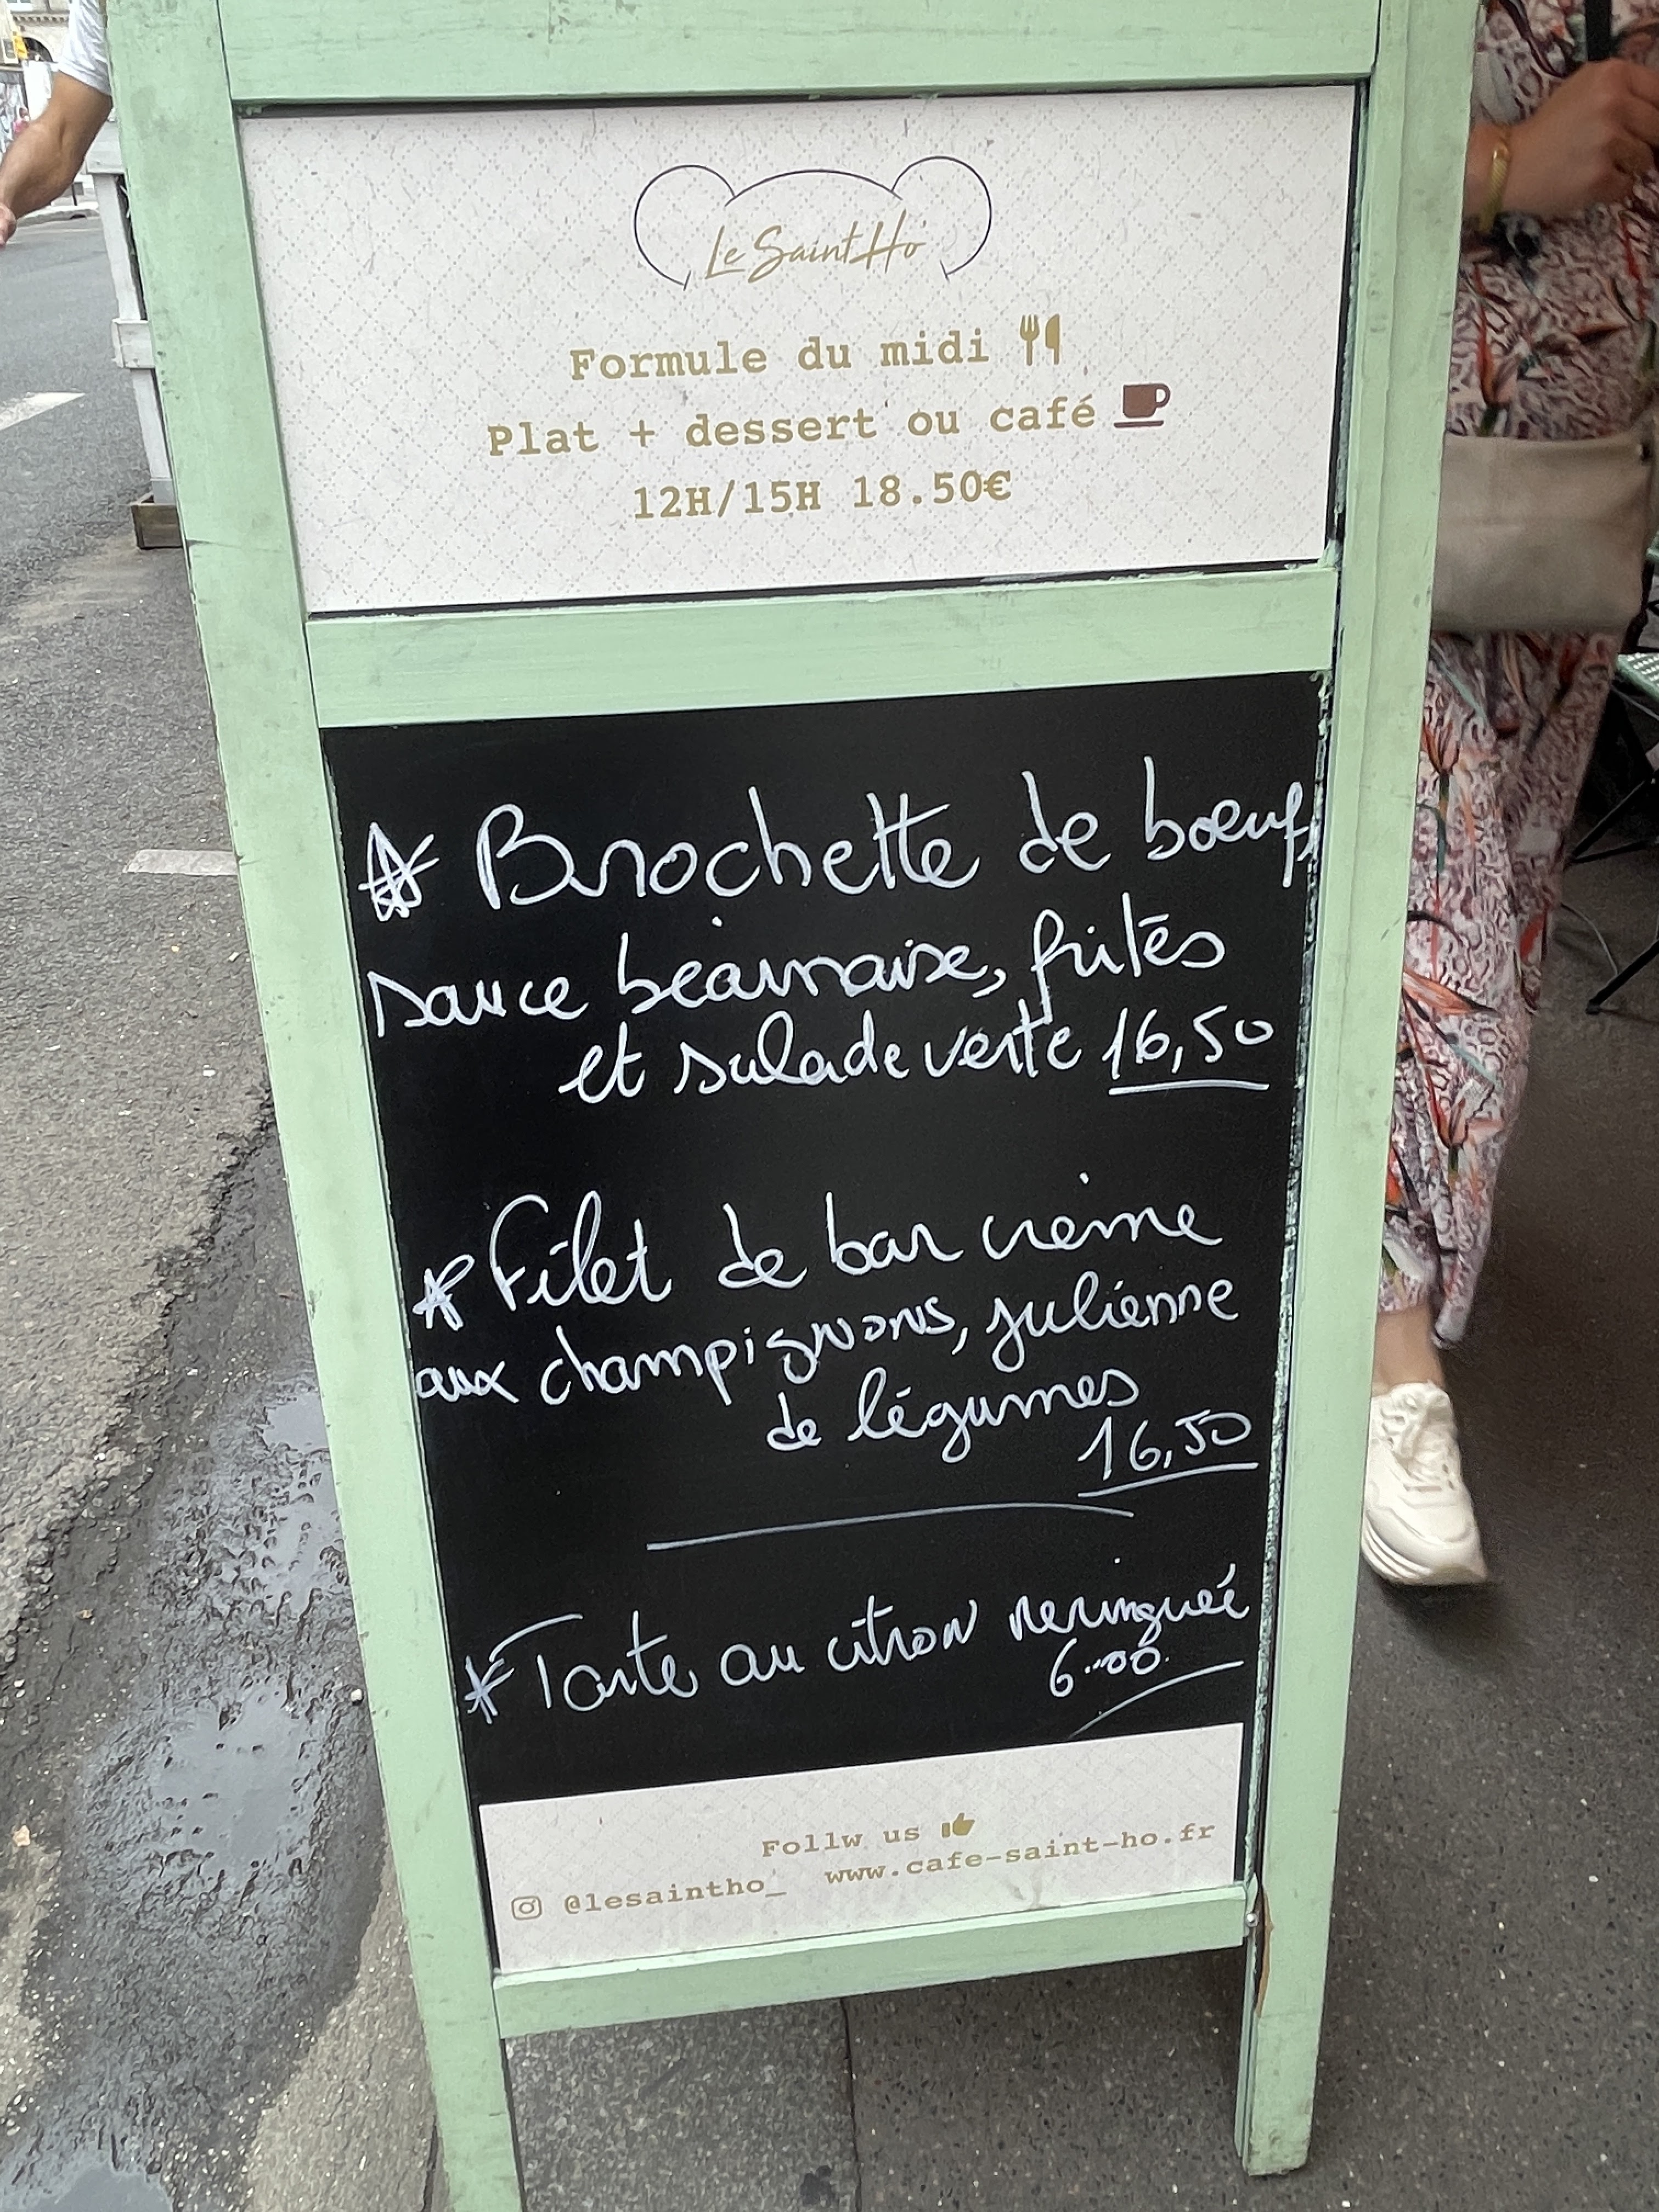 Le Saint Ho
Formule du midi
Plat + dessert ou café
12H/15H 18.50€
Brochette de bœuf,
sauce béarnaise, frites
et salade verte 16,50
Filet de bar crème
aux champignons, julienne
de légumes
16,50
Tarte au citron meringuée
6.00
Follw us
www.cafe-saint-ho.fr
@lesaintho_